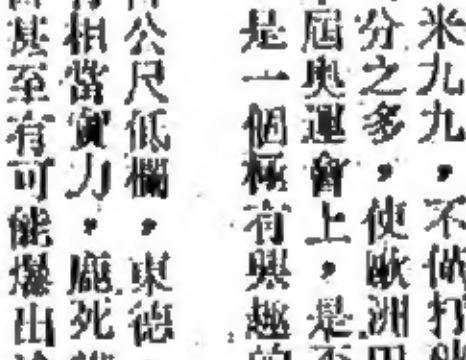 米九九，不做打
分之多，使歐洲田
屆奧運會上，是否
是一個極有興趣的
公尺低欄，東德
相當實力，鹿死
甚至有可能爆出